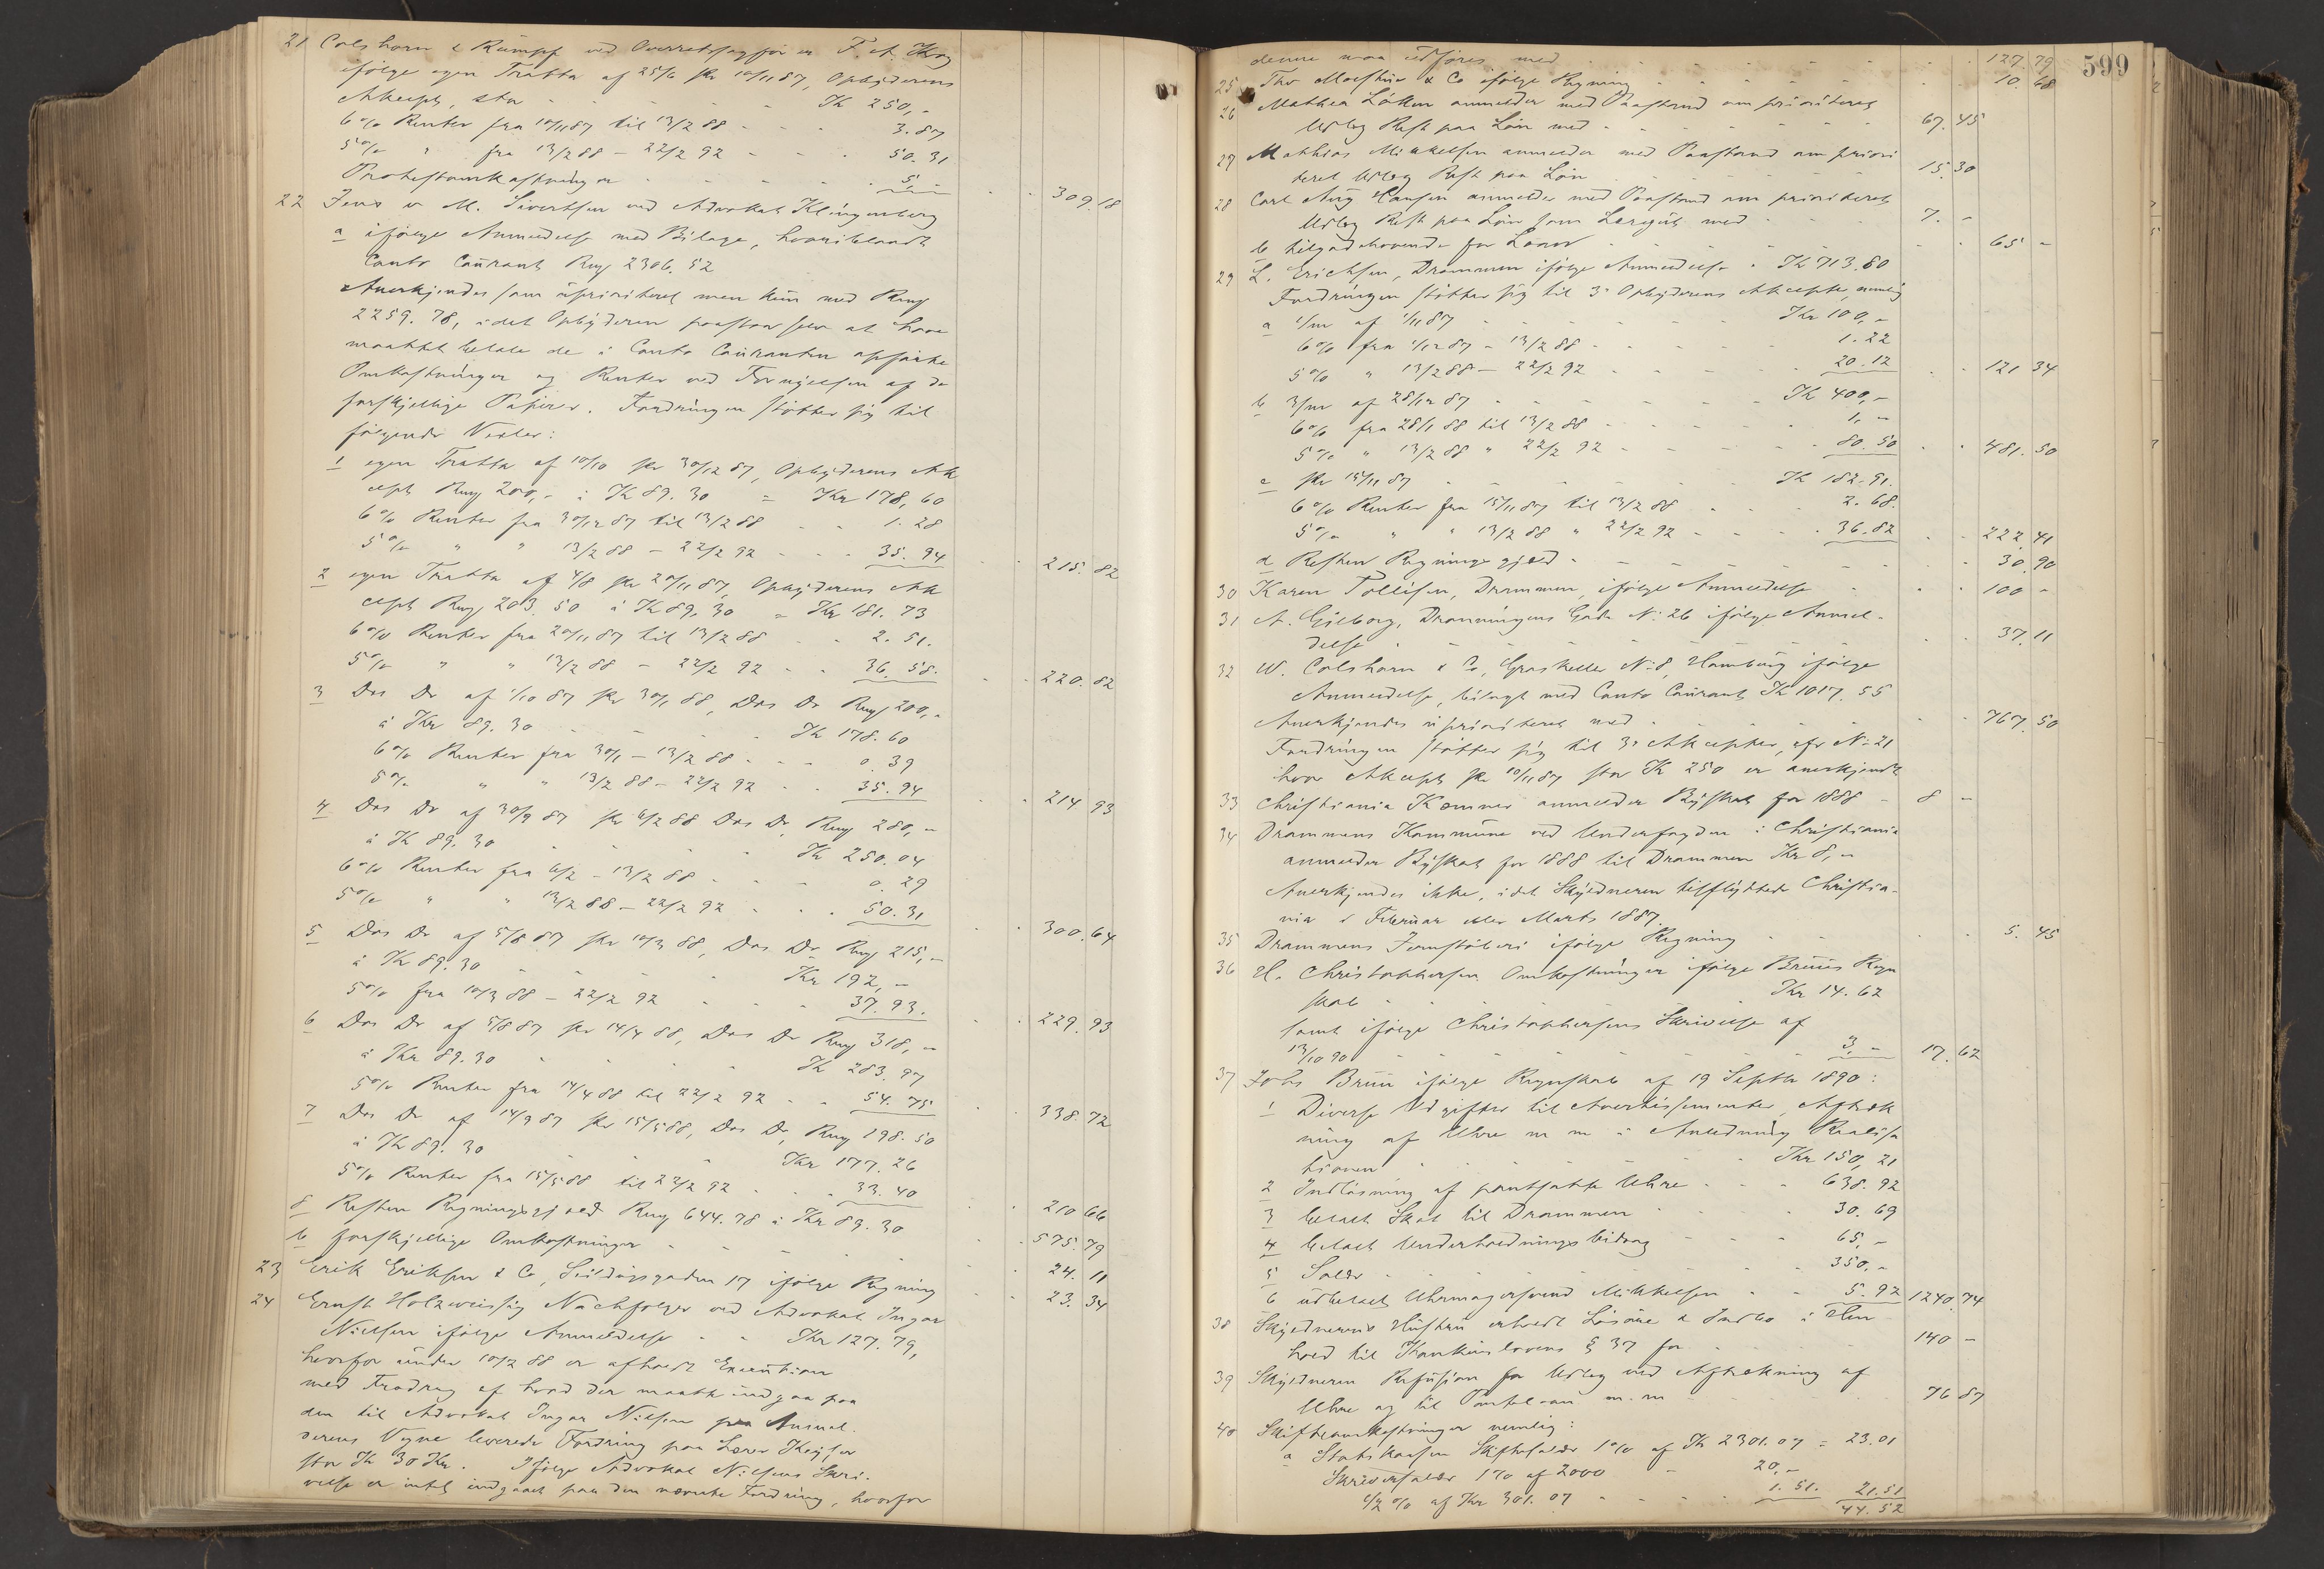 21 Colshorn & Kümpf ved Overretssagfører F. A. Krog
ifølge egen Tratta af 25/6 pr 10/11 87, Opbyderens
Akcept, stor - - - Kr 250,-
6 % Renter fra 10/11 87 til 13/2 88 - - - 3.87
5 % " fra 13/2 88 - 22/2 92 - - - 50.31
Protestomkostninger - - - 5,- 309.18
22 Jens v. M. Sivertsen ved Advokat Klingenberg
a ifølge Anmeldelse med Bilage, hvoriblandt
Conto Courant Rmg 2306.52
Anerkjendes som uprioriteret men kun med Rmg
2259.78, idet Opbyderen paastaar selv at have
maattet betale de i Conto Couranten opførte
Omkostninger og Renter ved Fornyelsen af de
forskjellige Papirer. Fordringen støtter sig til
følgende Vexler:
1 egen Tratta af 10/10 pr 30/12 87, Opbyderens Ak
cept Rmg 200,- à Kr 89.30 = Kr 178,60
6 % Renter fra 30/12 87 til 13/2 88 - - 1.28
5 % " " 13/2 88 - 22/2 92 - - - 35.94 215.82
2 egen Tratta af 4/8 pr 20/11 87, Opbyderens Ak
cept Rmg 203.50 à Kr 89.30 = Kr 181.73
6 % Renter fra 20/11 87 til 13/2 88 - - 2.51.
5 % " " 13/2 88 - 22/2 92 - - 36.58. 220.82
3 Dos Do af 1/10 87 pr 30/1 88, Dos Do Rmg 200,-
à Kr 89.30 - - - Kr 178.60
6 % Renter fra 30/1 - 13/2 88 - - - 0.39
5 % " " 13/2 88 - 22/2 92 - - 35.94 214.93
4 Dos Do af 30/9 87 pr 6/2 88 Dos Do, Rmg 280,-
à Kr 89.30 - - - Kr 250.04
6 % Renter fra 6/2 - 13/2 88 - - - 0.29
5 % " " 13/2 88 - 22/2 92 - - - 50.31 300.64
5 Dos Do af 5/8 87 pr 10/3 88, Dos Do Rmg 215,-
à Kr 89.30 - - - Kr 192,-
5 % fra 10/3 88 - 22/2 92 - - - 37.93. 229.93
6 Dos Do af 5/8 87 pr 14/4 88, Dos Do Rmg 318,-
à Kr 89.30 - - - Kr 283.97
5 % Renter fra 14/4 88 til 22/2 92 - - 54.75 338.72
7 Dos Do af 14/9 87 pr 15/5 88, Dos Do, Rmg 198.50
à Kr 89.30 - - - Kr 177.26
5 % Renter fra 15/5 88 til 22/2 92 - - - 33.40 210.66
8 Resten Regningsgjæld Rmg 644.78 à Kr 89.30 575.79
b forskjellige Omkostninger - - - 24.11
23 Erik Eriksen & Co, Skildagsgaden 17 ifølge Regning 23.34
24 Ernst Holzweissig Nachfolger ved Advokat Ingar
Nielsen ifølge Anmeldelse - - Kr 127.79,
hvorfor under 10/2 88 er afholdt Execution
med Fradrag af hvad der maatte indgaa paa
den til Advokat Ingar Nielsen paa Anmel-
derens Vegne leverede Fordring paa Lærer Keyser
stor Kr 30 Kr. Ifølge Advokat Nielsens Skri-
velse er intet indgaaet paa den nævnte Fordring, hvorfor
599
denne maa udføres med - - - 127.79
25 Thv Moestue & Co ifølge Regning - - - 10.68
26 Mathea Løken anmelder med Paastand om prioriteret
Udlæg Rest paa Løn med - - - 67.45
27 Mathias Mikkelsen anmelder med Paastand om priori
teret Udlæg Rest paa Løn - - - 15.30
28 Carl Aug Hansen anmelder med Paastand om prioriteret
Udlæg Rest paa Løn som Læregut med - - - 7.-
b tilgodehavende for Laan - - - 65 -
29 L. Erichsen, Drammen ifølge Anmeldelse - Kr 713.80
Fordringen støtter sig til 3 Opbyderens Akcepter, nemlig
a 1/m af 1/11 87 - - - Kr 100,-
6 % fra 1/12 87 - 13/2 88 - - - 1.22
5 % " 13/2 88 - 22/2 92 - - - 20.12 121 34
b 3/m af 28/10 87 - - - Kr 400,-
6 % fra 28/1 88 til 13/2 88 - - - 1,-
5 % " 13/2 88 " 22/2 92 - - - 80.50 481.50
c pr 15/11 87 - - - Kr 182.91.
6 % Renter fra 15/11 87 til 13/2 88 - - - 2.68.
5 % " " 13/2 88 " 22/2 92 - - - 36.82 222.41
d Resten Regningsgjæld - - - 30.90
30 Karen Tollefsen, Drammen, ifølge Anmeldelse - - 100 -
31 A. Gilborg, Dronningens Gade No 26 ifølge Anmel-
delse - - - 37.11
32 W. Colshorn & Co, Graskeller No 8, Hamburg ifølge
Anmeldelse, bilagt med Conto Courant Kr 1017.55
Anerkjendes uprioriteret med - - - 767.50
Fordringen støtter sig til 3 Akcepter, cfr No 21
hvor Akcept pr 10/11 87 stor Kr 250 er anerkjendt
33 Christiania Kæmner anmelder Byskat for 1888 - 8 -
34 Drammens Kommune ved Underfogden i Christiania
anmelder Byskat for 1888 til Drammen Kr 8,-
Anerkjendes ikke, idet Skyldneren tilflyttede Christia-
nia i Februar eller Marts 1887,
35 Drammens Jernstøberi ifølge Regning - - - 5.45
36 H. Christophersen Omkostninger ifølge Bruuns Regn
skab - - - Kr 14.62
samt ifølge Christophersens Skrivelse af
13/10 90 - - - 3,- 17.62
37 Johs Bruun ifølge Regnskab af 19 Septbr 1890:
1 Diverse Udgifter til Avertissementer, Aftræk
ning af Uhre m m i Anledning Realisa
tionen - - - Kr 150,21
2 Indløsning af pantsatte Uhre - - - 638.92
3 betalt Skat til Drammen - - - 30.69
4 betalt Underholdningsbidrag - - - 65,-
5 Salær - - - 350,-
6 udbetalt Uhrmagersvend Mikkelsen - - 5.92 1240.74
38 Skyldnerens Hustru erholdt Løsøre & Indbo i Hen
hold til Konkurslovens § 37 for - - - 140 -
39 Skyldneren Refusion for Udlæg ved Aftrækning af
Uhre og til m.m 76 87
40 Skifteomkostninger nemlig:
a Statskassen Skiftesalær 1 % af Kr 2301.07 = 23.01
Skriversalær 1 % af 2000 - 20,-
1/2 % af Kr 301.07 - - - 1.51. 21.51
44.52